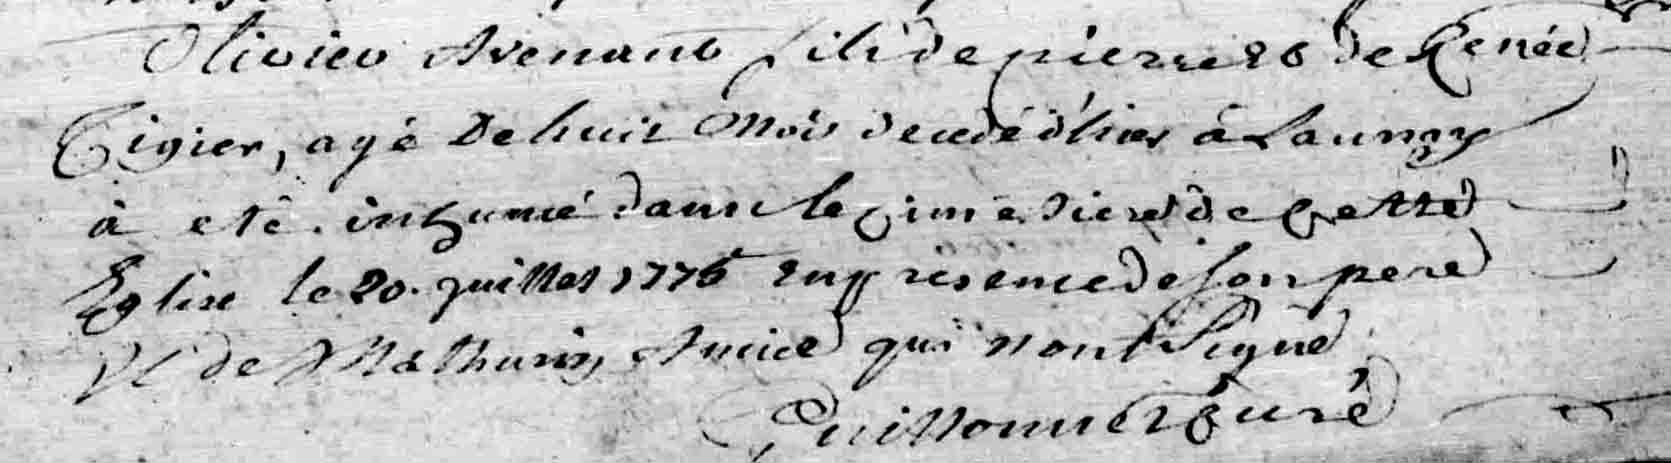 Olivier Avenant fils de pierre et de Renée
Tigier, agé de huit mois decedé d'hier à Launay
à eté inhumé dans le cimetiere de cette
Eglise le 20. juillet 1776 en presence de son pere
et de Mathurin Amice qui n'ont signé
Guillonnet Curé